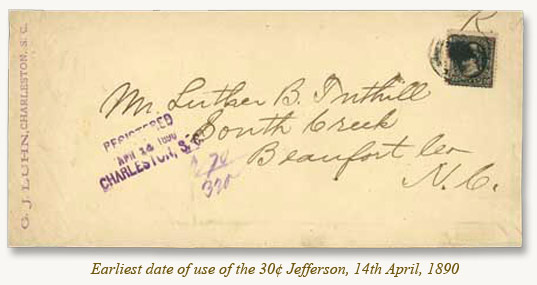 G. J. LUHN, CHARLESTON, S. C.
R
Mr. Luther B. Tuthill
South Creek
Beaufort Co
N. C.
REGISTERED
APR 14 1890
CHARLESTON, S. C.
320
Earliest date of use of the 30¢ Jefferson, 14th April, 1890